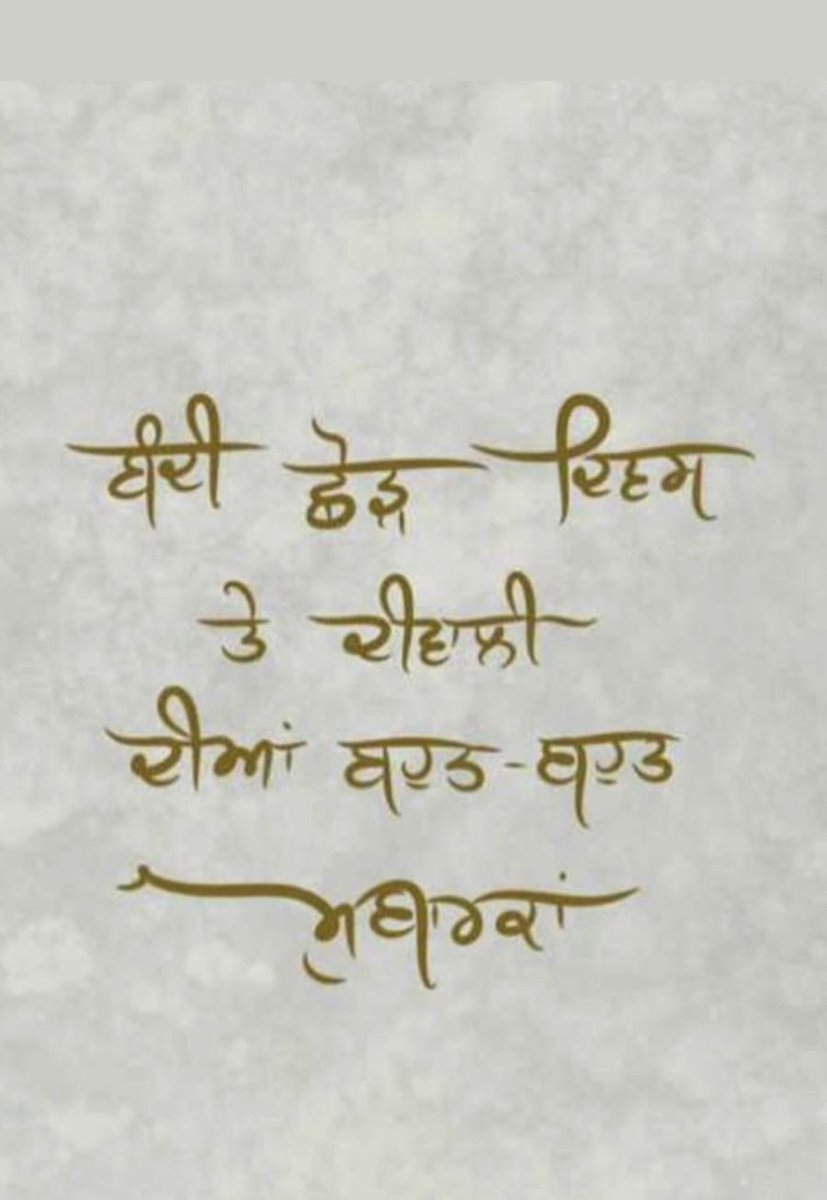 ਬੰਦੀ ਛੋੜ ਦਿਵਸ
ਤੇ ਦੀਵਾਲੀ
ਦੀਆਂ ਬਹੁਤ-ਬਹੁਤ
ਮੁਬਾਰਕਾਂ